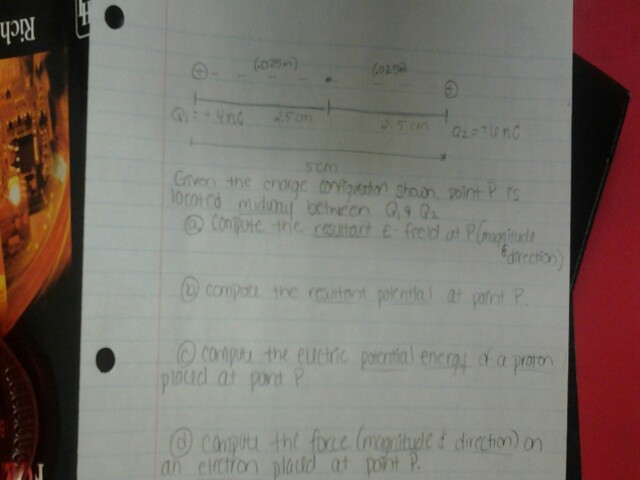 Rich
(.025m) (.025m)
+ +
Q1 = +4nC 2.5cm 2.5cm Q2 = +6nC
5cm
Given the charge configuration shown, point P is
located midway between Q1 & Q2
(a) compute the resultant E-field at P (magnitude
& direction)
(b) compute the resultant potential at point P.
(c) compute the electric potential energy of a proton
placed at point P
(d) compute the force (magnitude & direction) on
an electron placed at point P.